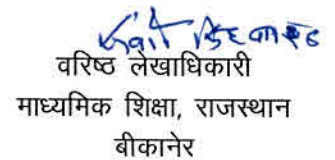 वरिष्ठ लेखाधिकारी
माध्यमिक शिक्षा, राजस्थान
बीकानेर